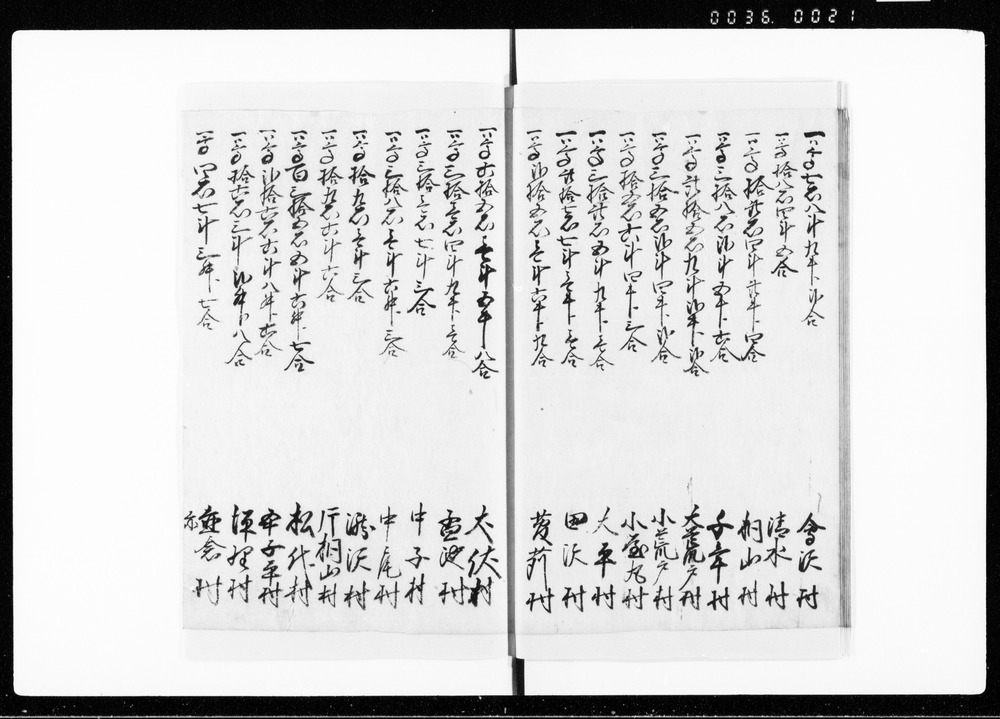 0036. 0021
一高七石八斗九升弐合 会沢村
一高拾八石四斗五合 清水村
一高拾弐石四斗弐升四合 桐山村
一高三拾八石弐斗五升六合 千年村
一高弐拾五石九斗弐升弐合 大荒戸村
一高三拾五石弐斗四升弐合 小荒戸村
一高拾五石六斗四升三合 小屋丸村
一高三拾弐石五斗九升壱合 太平村
一高弐拾七石七斗壱升壱合 田沢村
一高弐拾五石壱斗六升九合 莇村
一高六拾五石壱斗五升八合 太伏村
一高三拾壱石四斗九升壱合 池村
一高三拾壱石七斗三合 中子村
一高三拾八石壱斗六升三合 中尾村
一高拾九石壱斗三合 滝沢村
一高拾九石六斗六合 片桐山村
一高百三拾五石五斗六升七合 松代村
一高弐拾六石六斗八升六合 子平村
一高拾六石三斗弐升八合 村
一高四石七斗三升七合 倉村